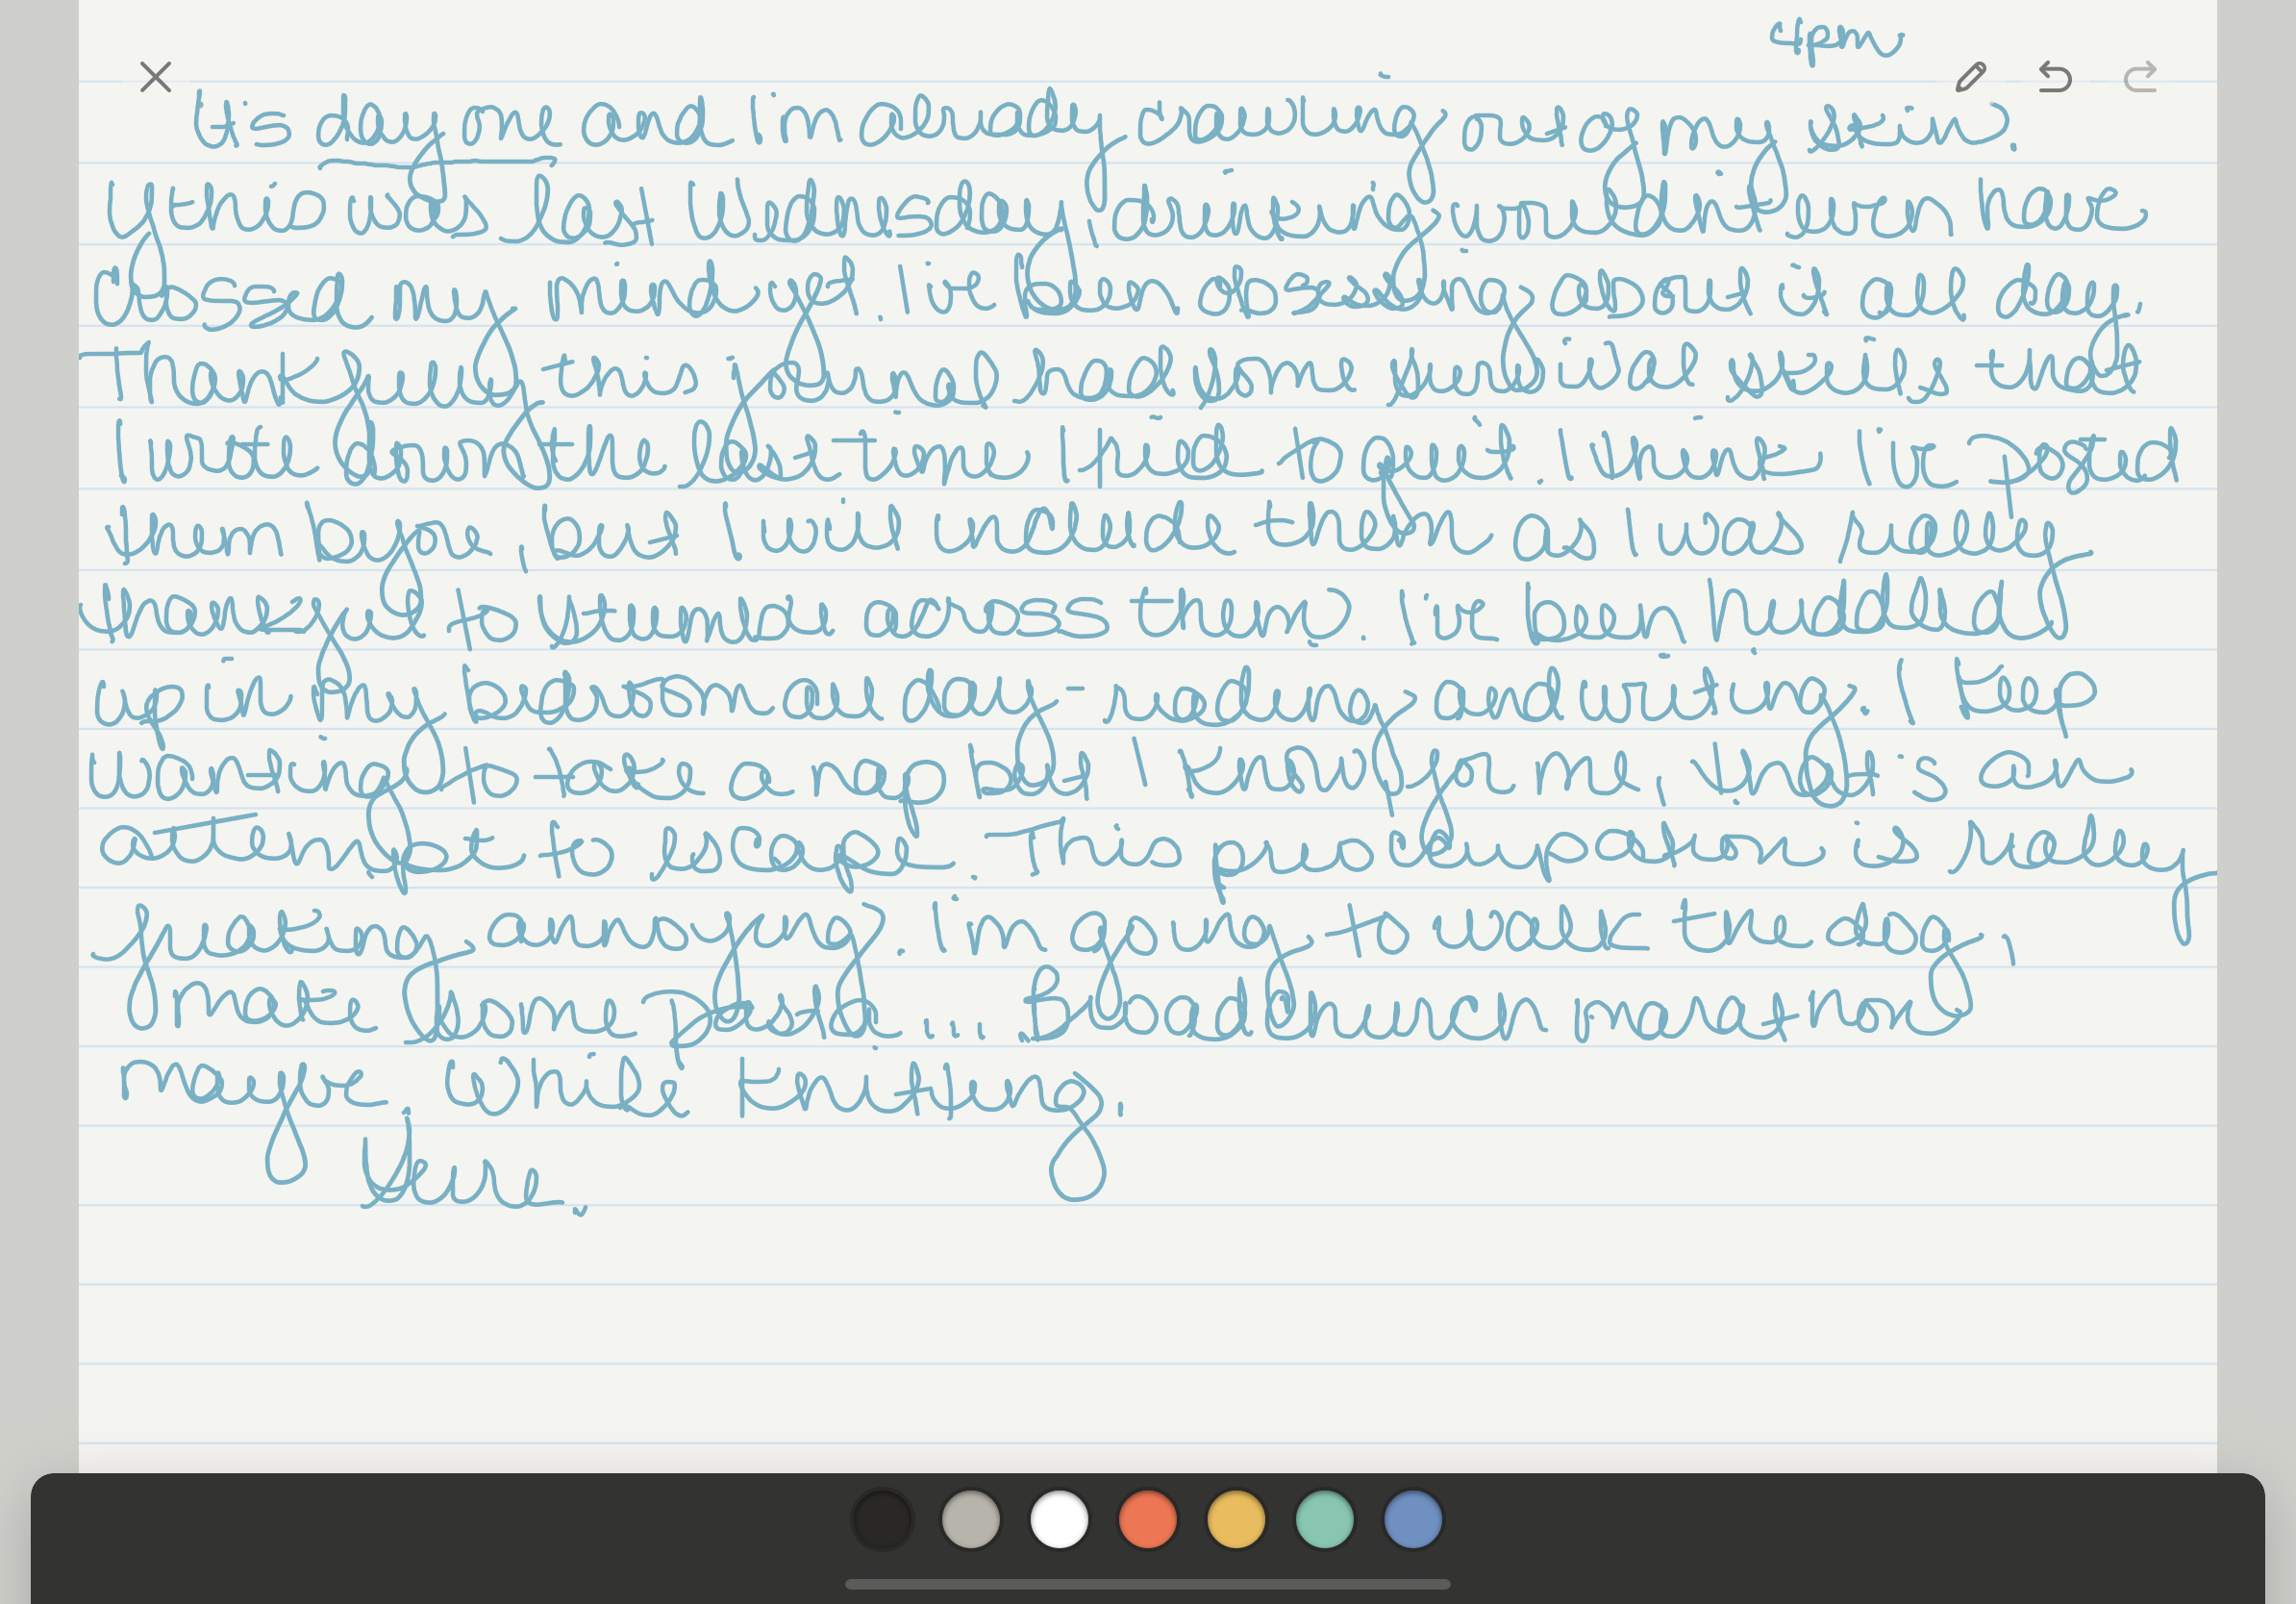 4pm
It's day one and I'm already crawling out of my skin.
If this was last Wednesday, drinking wouldn't even have
crossed my mind yet. I've been obsessing about it all day.
Thankfully this journal had some survival skills that
I wrote down the last time I tried to quit. I think I've posted
them before, but I will include them as I was really
thankful to stumble across them. I've been huddled
up in my bedroom all day - reading and writing. I keep
wanting to take a nap but I know for me, that's an
attempt to escape. This preoccupation is really
freaking annoying. I'm going to walk the dog,
make some pasta.... Blood Sugar
maybe. While knitting.